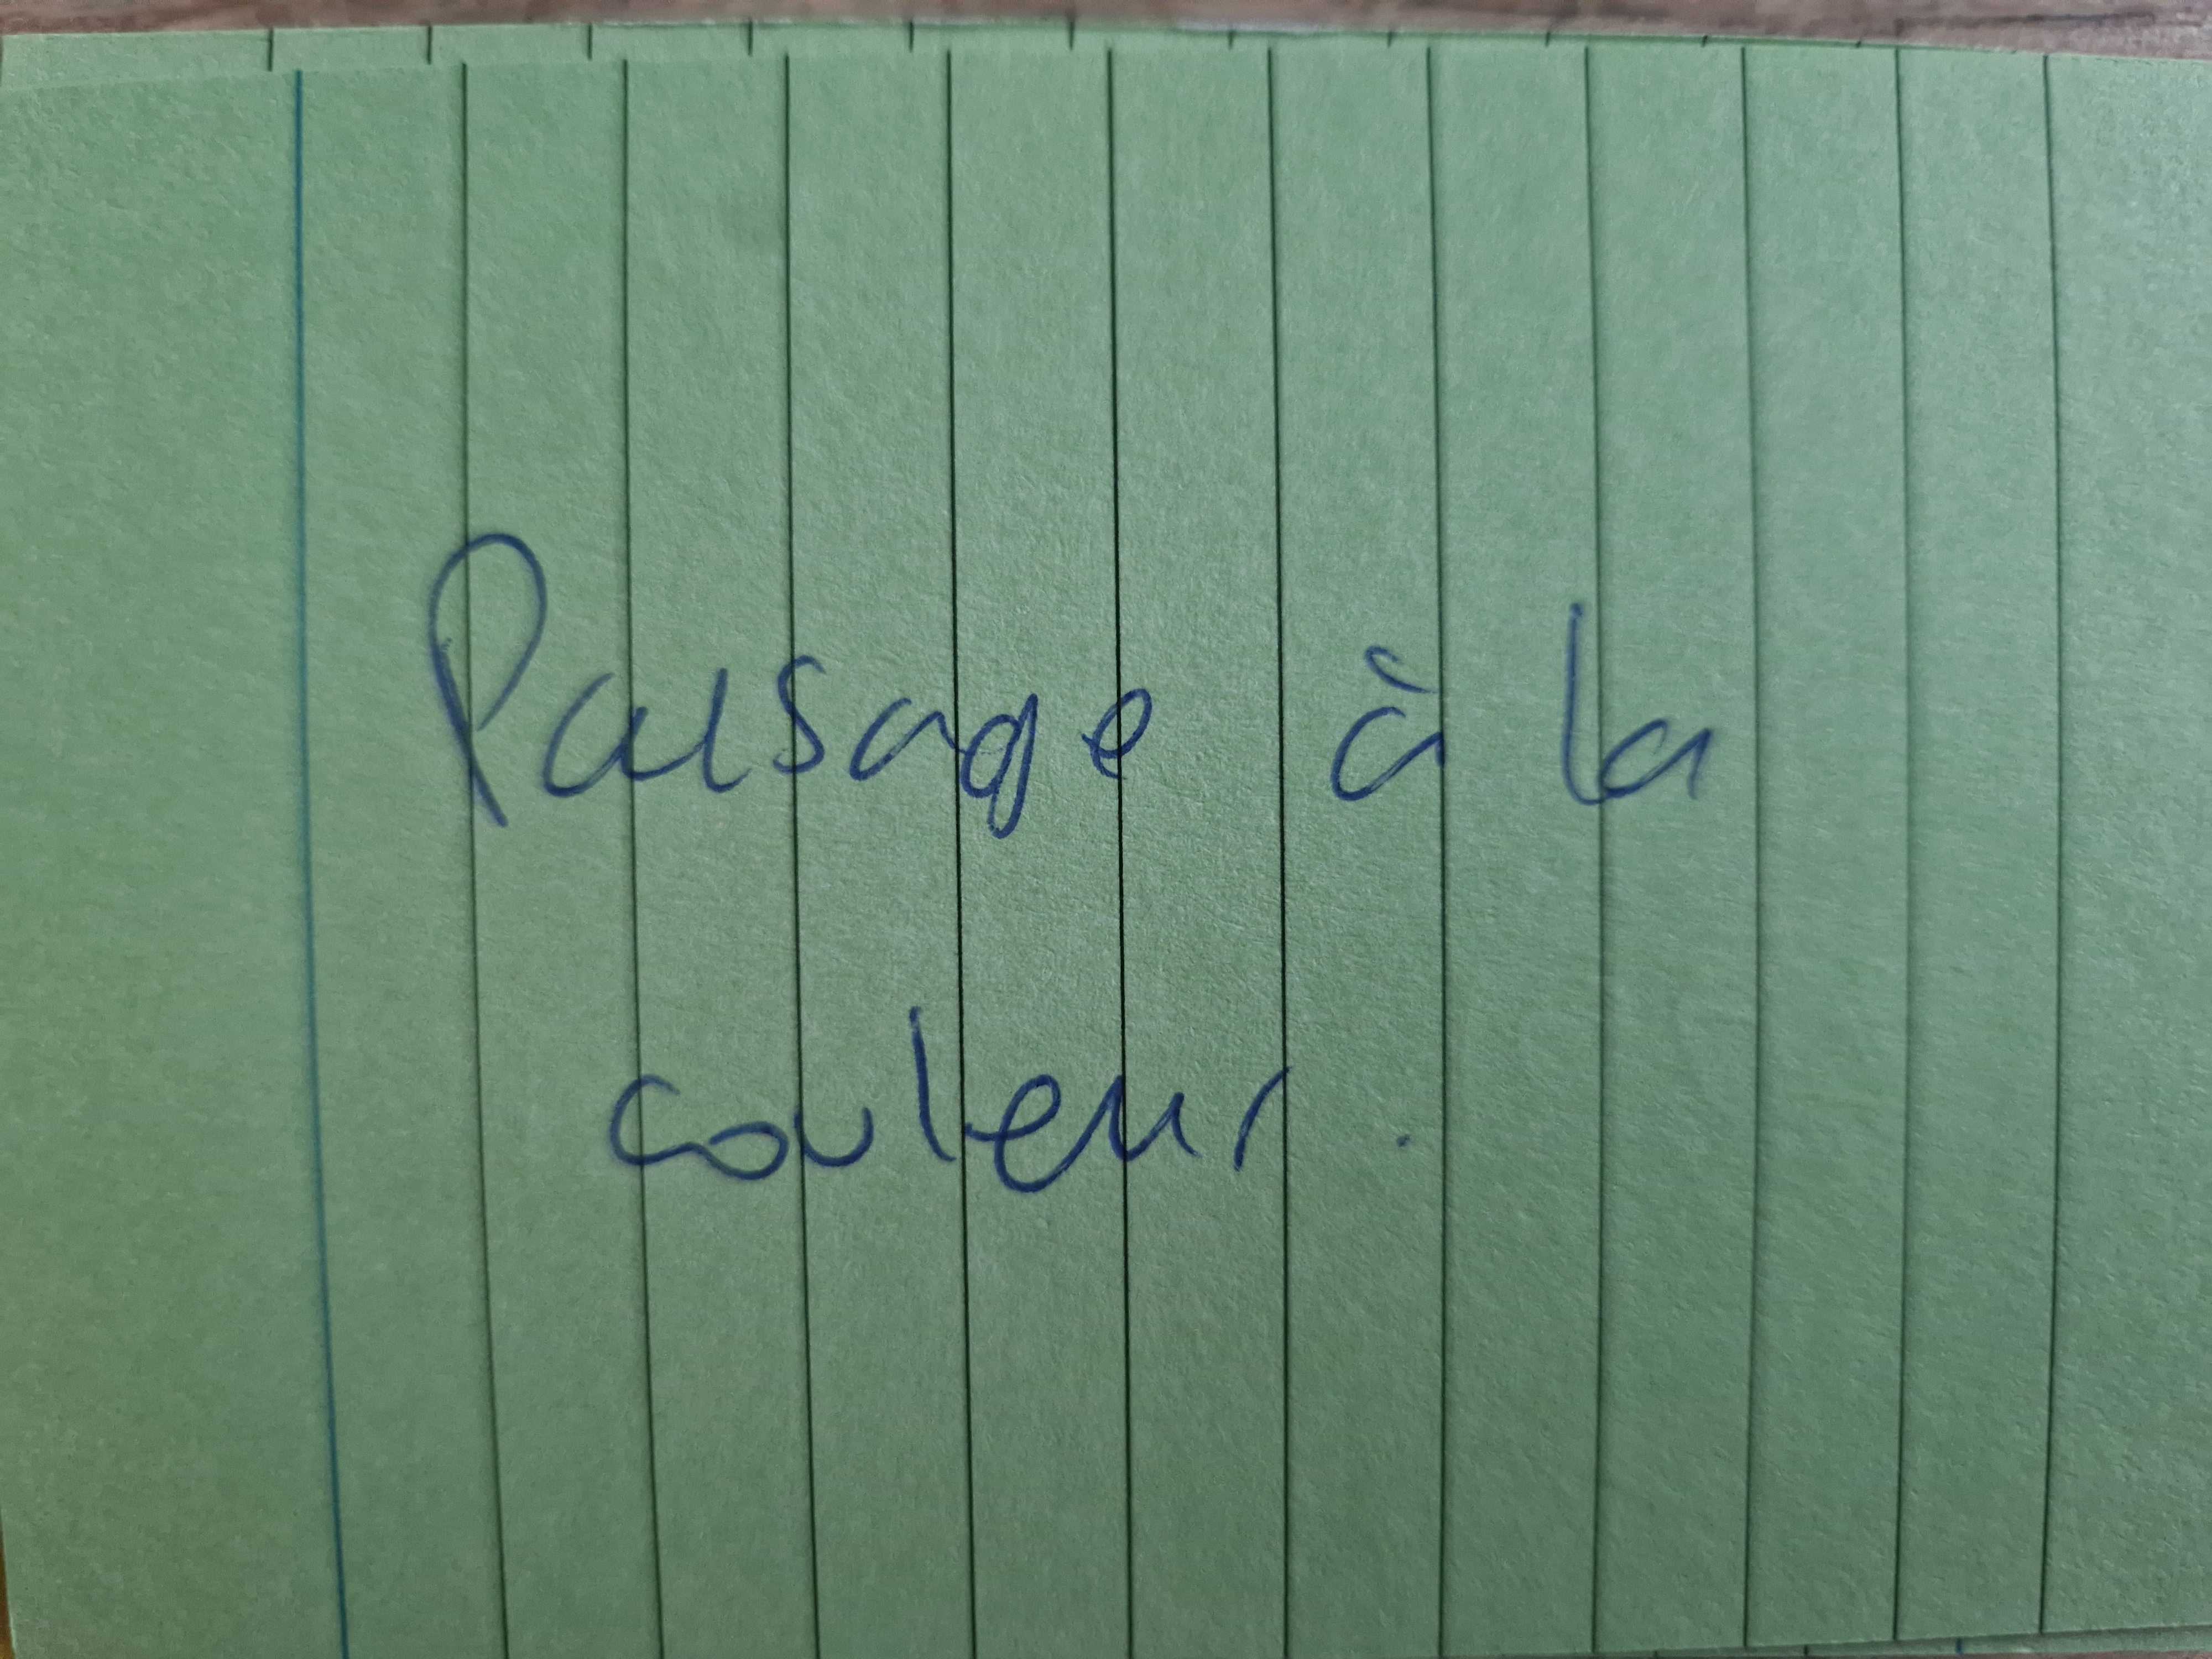 Passage à la
couleur.